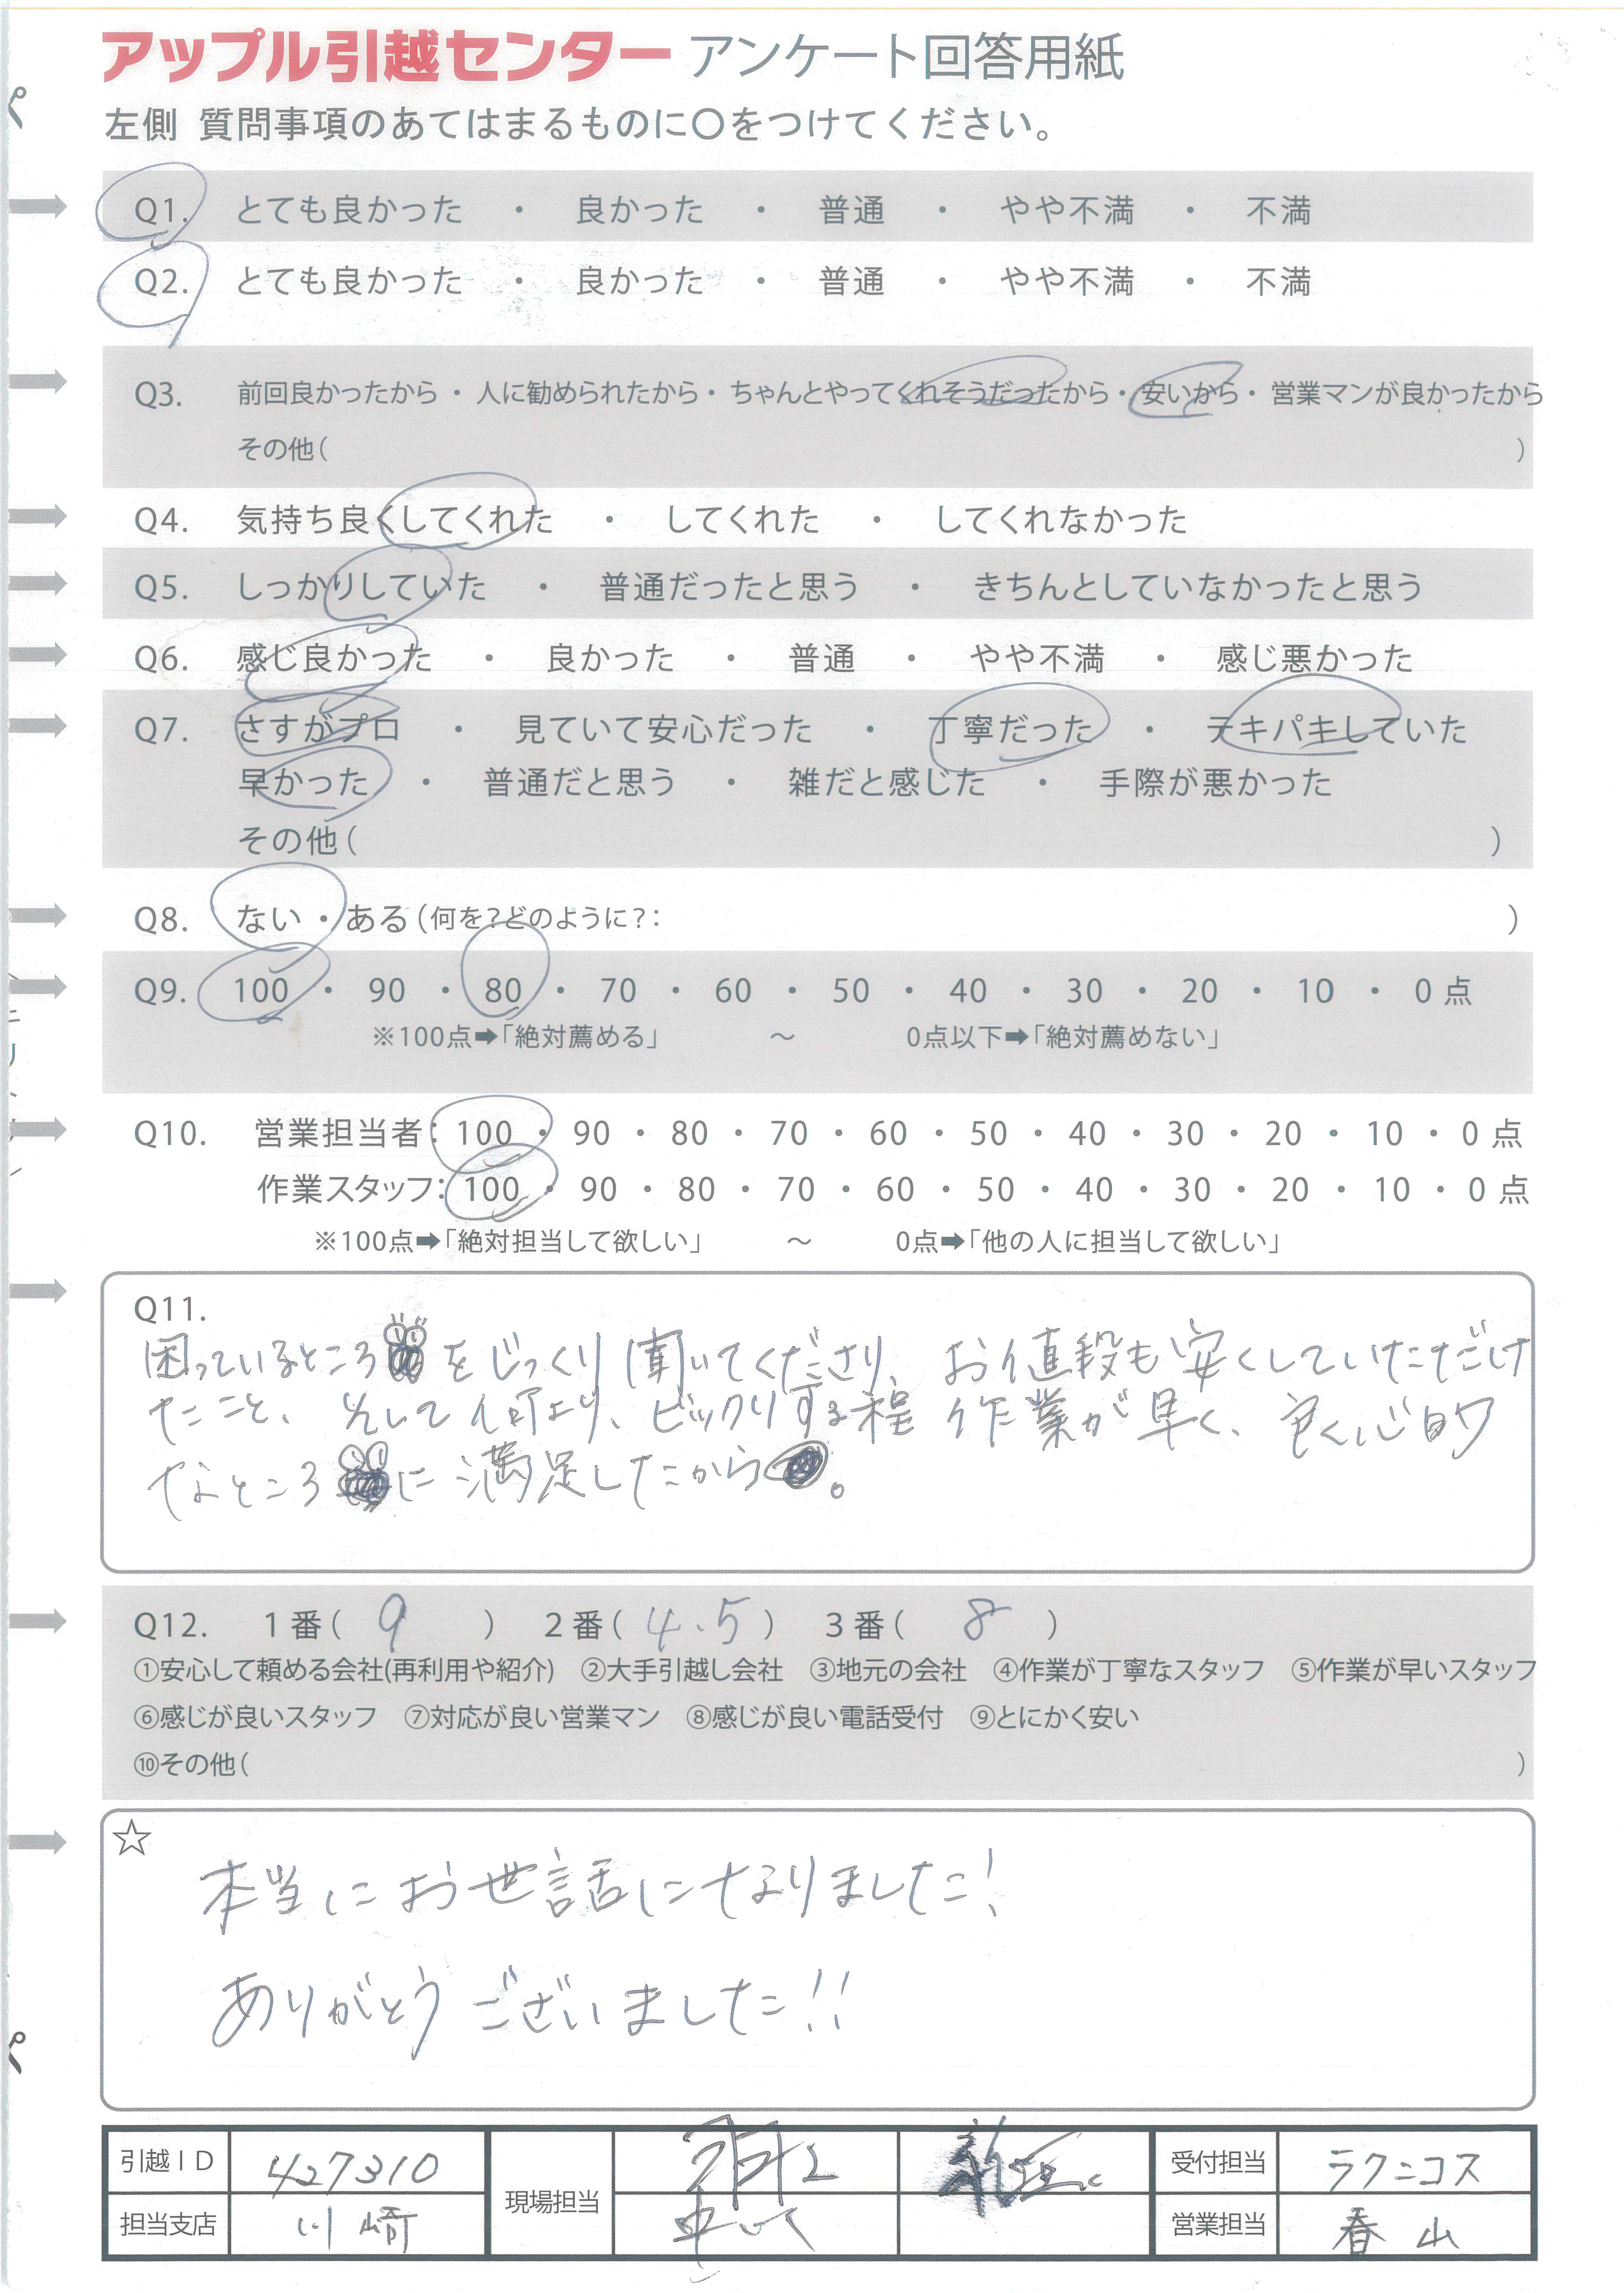 アップル引越センター アンケート回答用紙
左側 質問事項のあてはまるものに〇をつけてください。
Q1. とても良かった ・ 良かった ・ 普通 ・ やや不満 ・ 不満
Q2. とても良かった ・ 良かった ・ 普通 ・ やや不満 ・ 不満
Q3. 前回良かったから ・ 人に勧められたから ・ ちゃんとやってくれそうだったから ・ 安いから ・ 営業マンが良かったから
その他( )
Q4. 気持ち良くしてくれた ・ してくれた ・ してくれなかった
Q5. しっかりしていた ・ 普通だったと思う ・ きちんとしていなかったと思う
Q6. 感じ良かった ・ 良かった ・ 普通 ・ やや不満 ・ 感じ悪かった
Q7. さすがプロ ・ 見ていて安心だった ・ 丁寧だった ・ テキパキしていた
早かった ・ 普通だと思う ・ 雑だと感じた ・ 手際が悪かった
その他( )
Q8. ない ・ ある (何を?どのように?: )
Q9. 100 ・ 90 ・ 80 ・ 70 ・ 60 ・ 50 ・ 40 ・ 30 ・ 20 ・ 10 ・ 0 点
※100点➡「絶対薦める」 ～ 0点以下➡「絶対薦めない」
Q10. 営業担当者: 100 ・ 90 ・ 80 ・ 70 ・ 60 ・ 50 ・ 40 ・ 30 ・ 20 ・ 10 ・ 0 点
作業スタッフ: 100 ・ 90 ・ 80 ・ 70 ・ 60 ・ 50 ・ 40 ・ 30 ・ 20 ・ 10 ・ 0 点
※100点➡「絶対担当して欲しい」 ～ 0点➡「他の人に担当して欲しい」
Q11.
困っているところをじっくり聞いてくださり、お値段も安くしていただけ
たこと、そして何より、ビックリする程作業が早く、良心的
なところに満足したから。
Q12. 1番( 9 ) 2番( 4.5 ) 3番( 8 )
①安心して頼める会社(再利用や紹介) ②大手引越し会社 ③地元の会社 ④作業が丁寧なスタッフ ⑤作業が早いスタッフ
⑥感じが良いスタッフ ⑦対応が良い営業マン ⑧感じが良い電話受付 ⑨とにかく安い
⑩その他( )
☆
本当にお世話になりました!
ありがとうございました!!
引越ID 427310 現場担当 受付担当 ラクニコス
担当支店 川崎 営業担当 春山